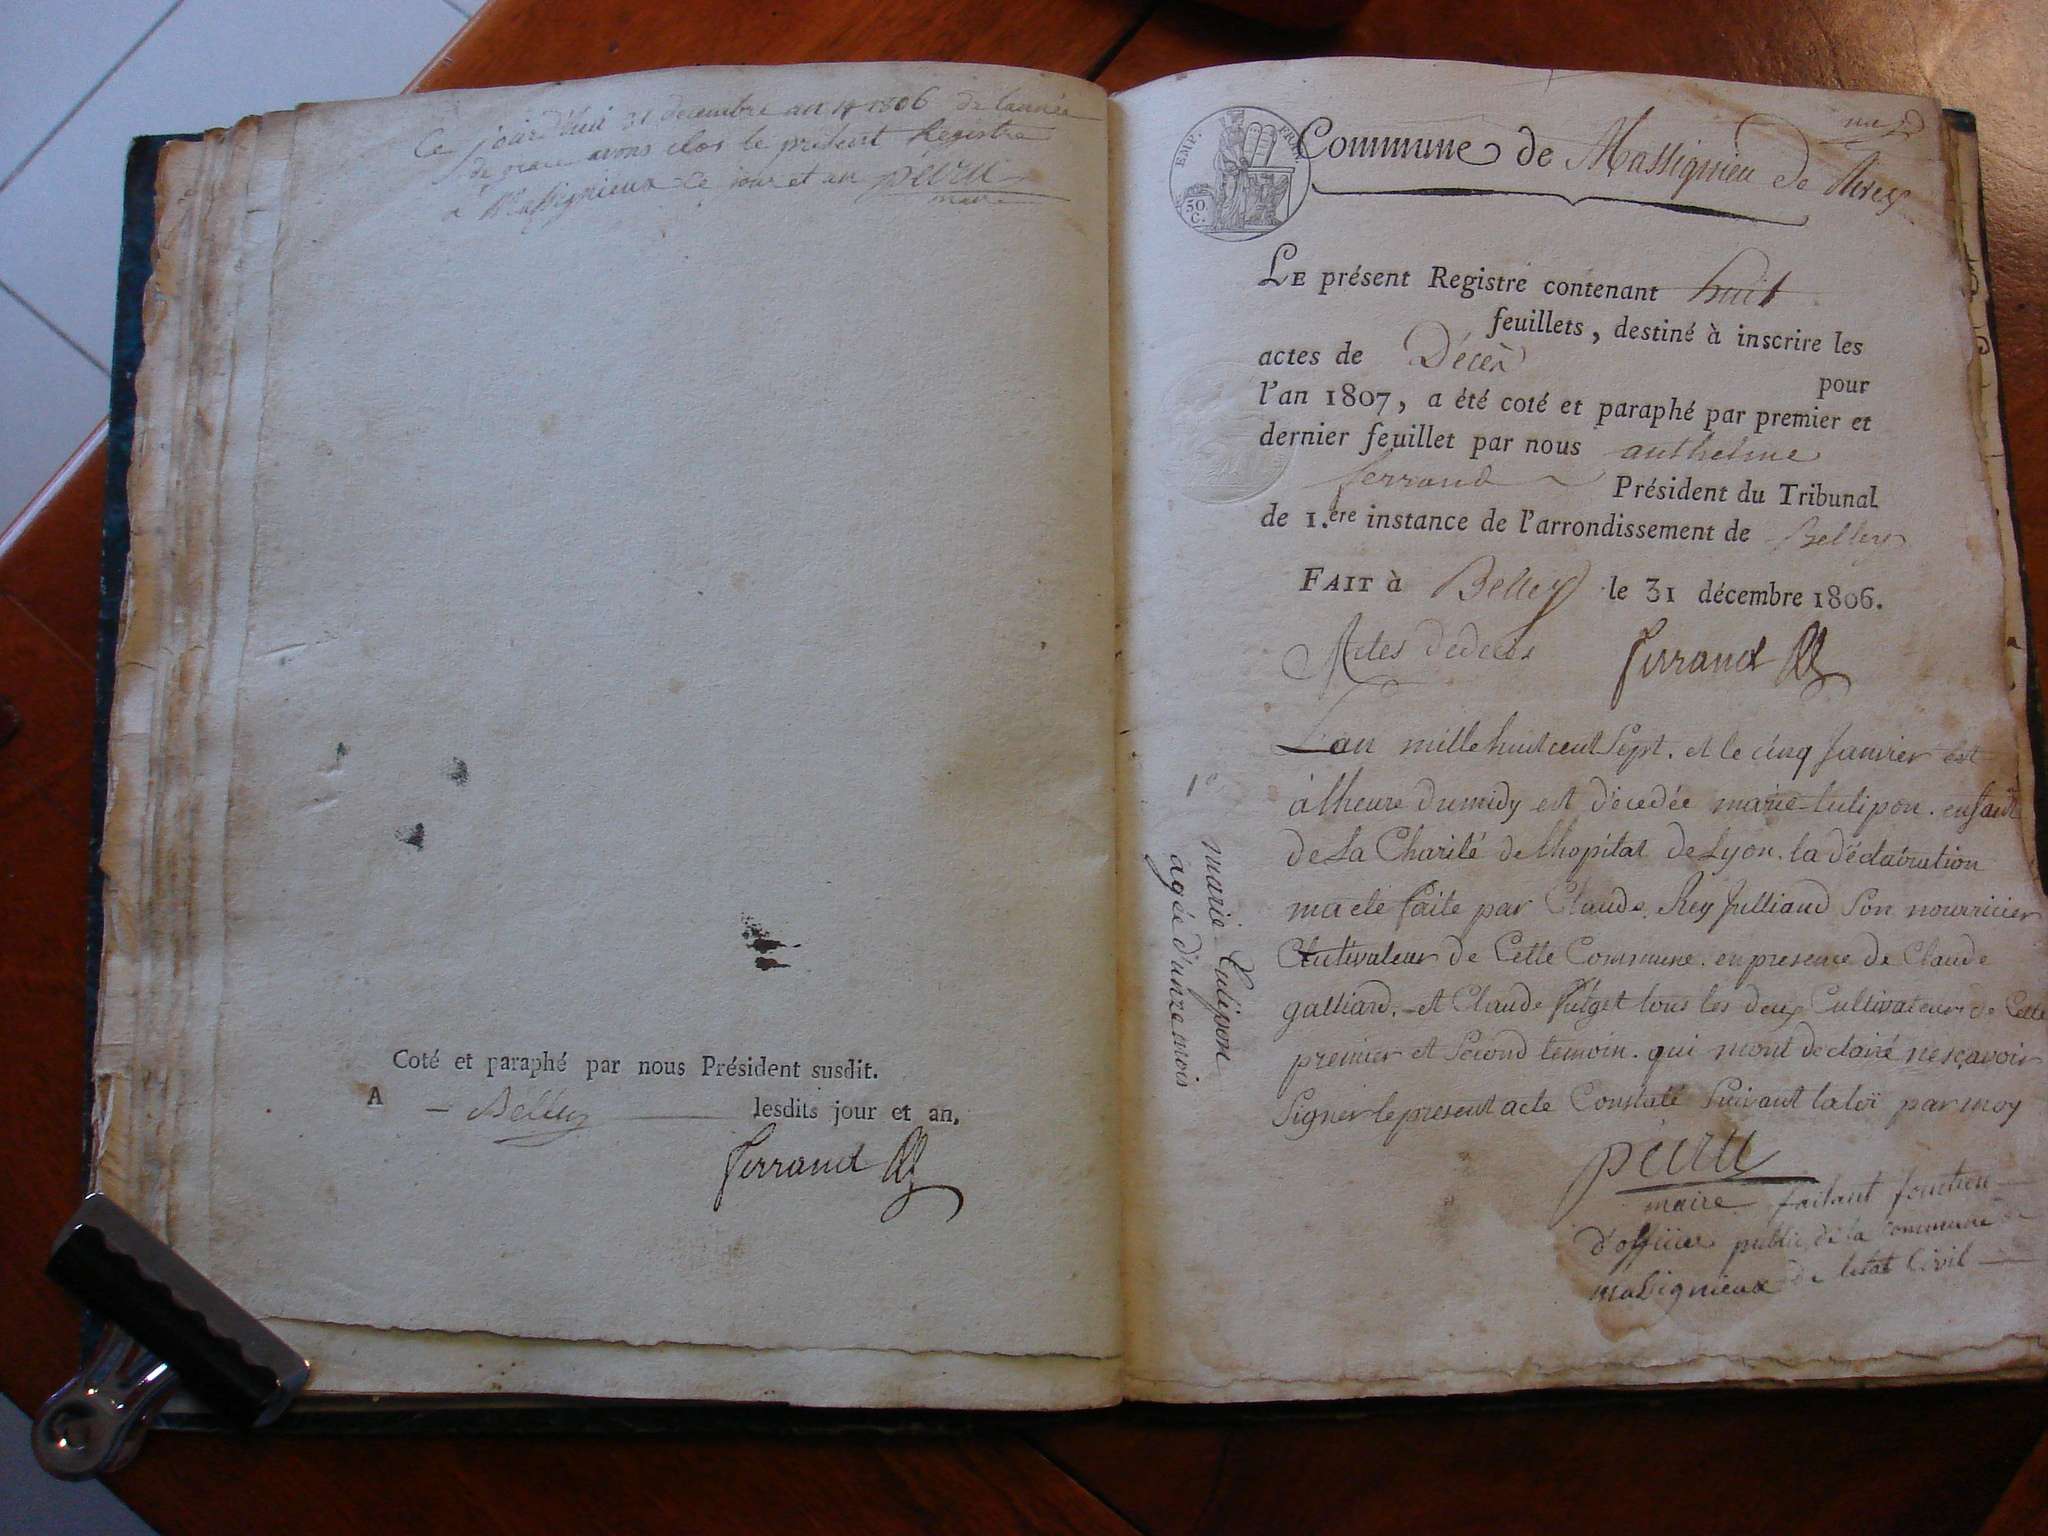 Ce jourd'hui 31 decembre an 1806 de lannée
de grace avons clos le présent Registre
a Massignieux ce jour et an péru
maire
Coté et paraphé par nous Président susdit.
A Belley lesdits jour et an.
ferrand
EMP. FRAN.
50 C.
Commune de Massignieu de Rives
LE présent Registre contenant huit
feuillets, destiné à inscrire les
actes de Décès pour
l'an 1807, a été coté et paraphé par premier et
dernier feuillet par nous anthelme
ferrand Président du Tribunal
de 1.ere instance de l'arrondissement de Belley
FAIT à Belley le 31 décembre 1806.
Actes dedeces ferrand
1e
marie tulipon
agée d'unze mois
Lan mille huit cent Sept. et le cinq Janvier est
à lheure dumidy est décedée marie tulipon. enfant
de La Charité de lhopital de Lyon. la déclaration
ma eté faite par Claude Rey Julliand Son nourricier
Cultivateur de Cette Commune. en presence de Claude
galliard. et Claude tous les deux Cultivateurs de Cette
premier et Second temoin. qui mont declairé nesçavoir
Signer le present acte Constaté Suivant la loi par moy
péru
maire faitant fonction
d'officier public de la commune de
massignieux de letat Civil